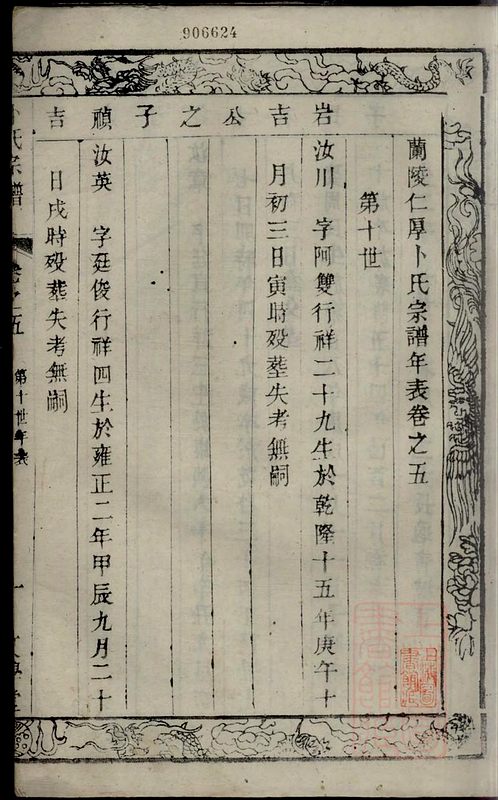 906624
蘭陵仁厚卜氏宗譜年表卷之五
第十世
岩吉公之子禎吉
汝川 字阿雙行祥二十九生於乾隆十五年庚午十
月初三日寅時歿塟失考無嗣
汝英 字廷俊行祥四生於雍正二年甲辰九月二十
日戌時歿塟失考無嗣
卜氏宗譜 卷之五 第十世年表 一